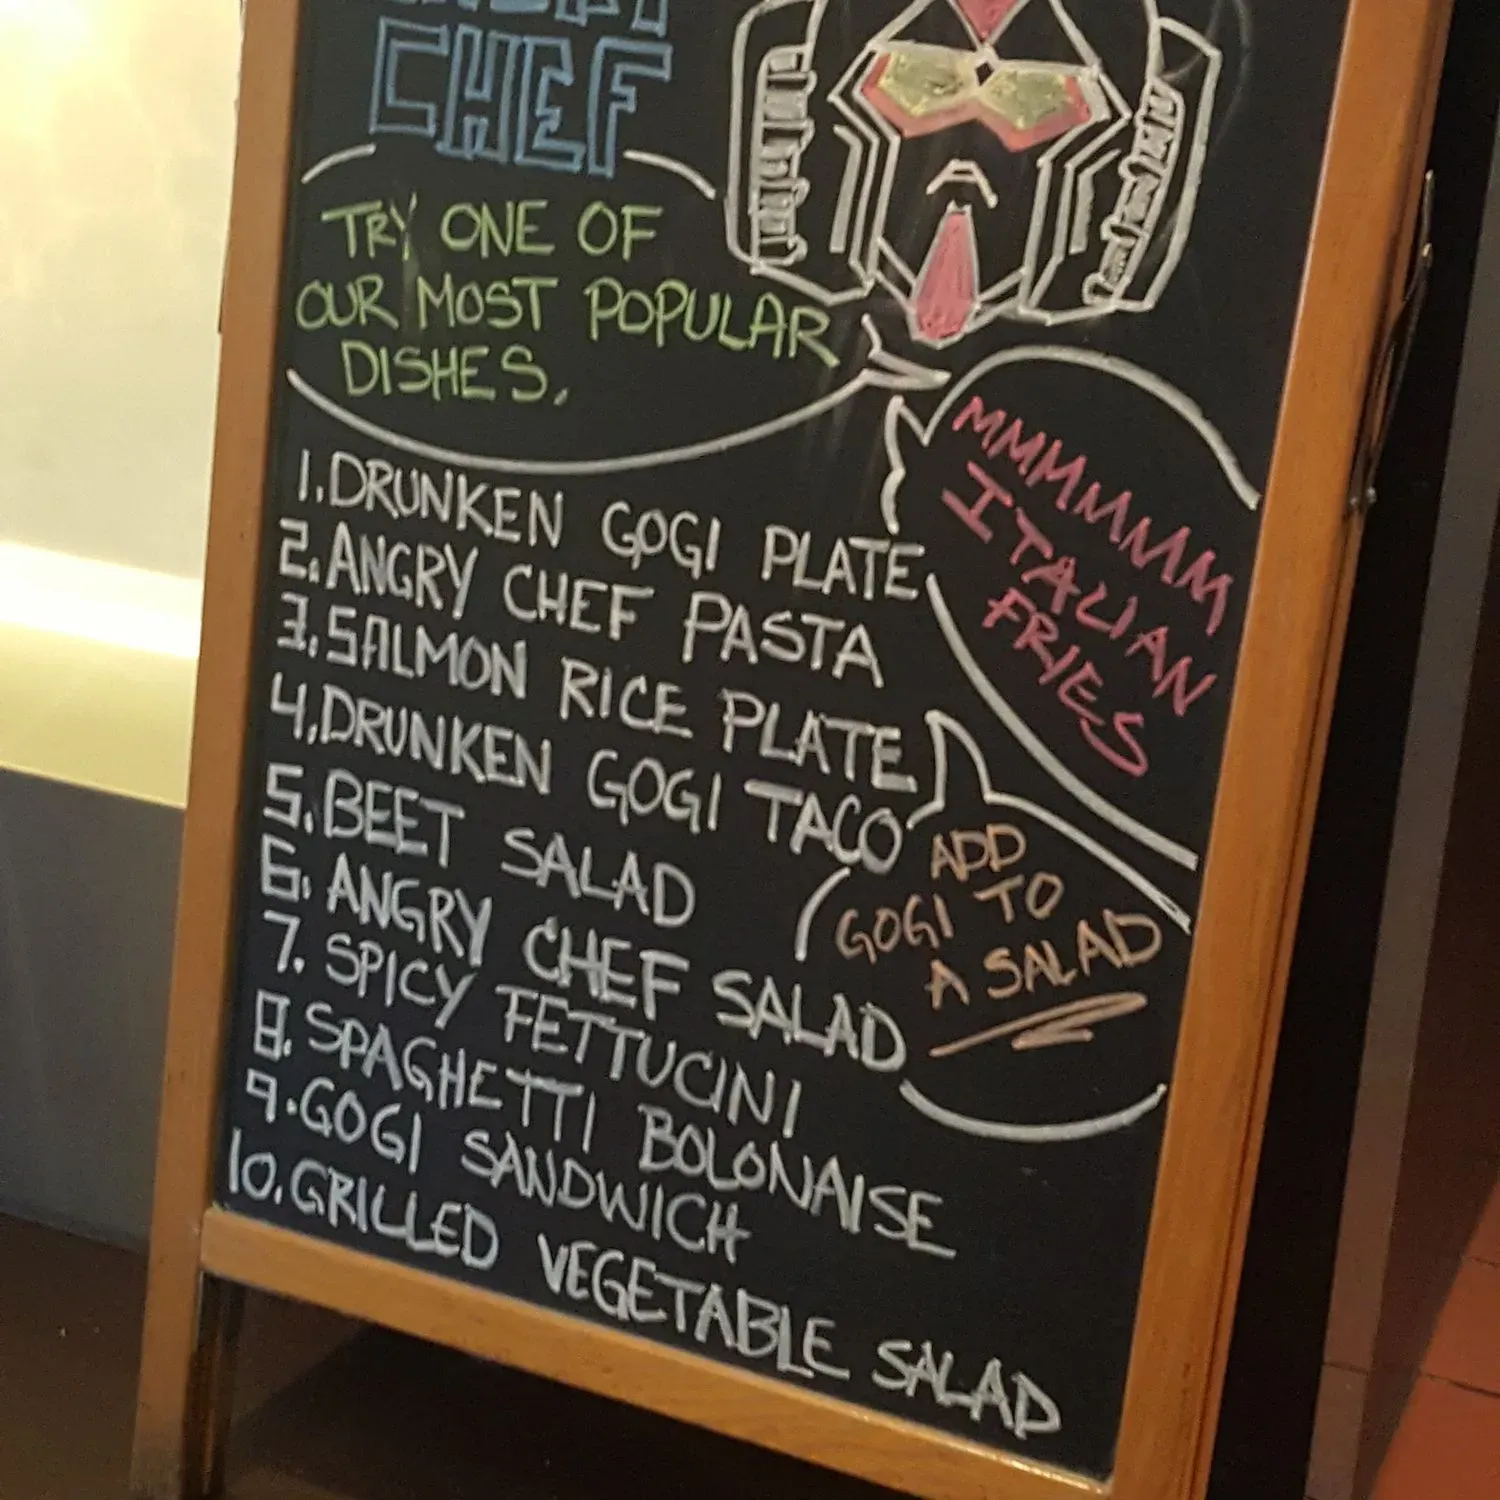 CHEF
TRY ONE OF
OUR MOST POPULAR
DISHES.
MMMMMM
ITALIAN
FRIES
1. DRUNKEN GOGI PLATE
2. ANGRY CHEF PASTA
3. SALMON RICE PLATE
4. DRUNKEN GOGI TACO
5. BEET SALAD
6. ANGRY CHEF SALAD
7. SPICY FETTUCINI
8. SPAGHETTI BOLONAISE
9. GOGI SANDWICH
10. GRILLED VEGETABLE SALAD
ADD
GOGI TO
A SALAD